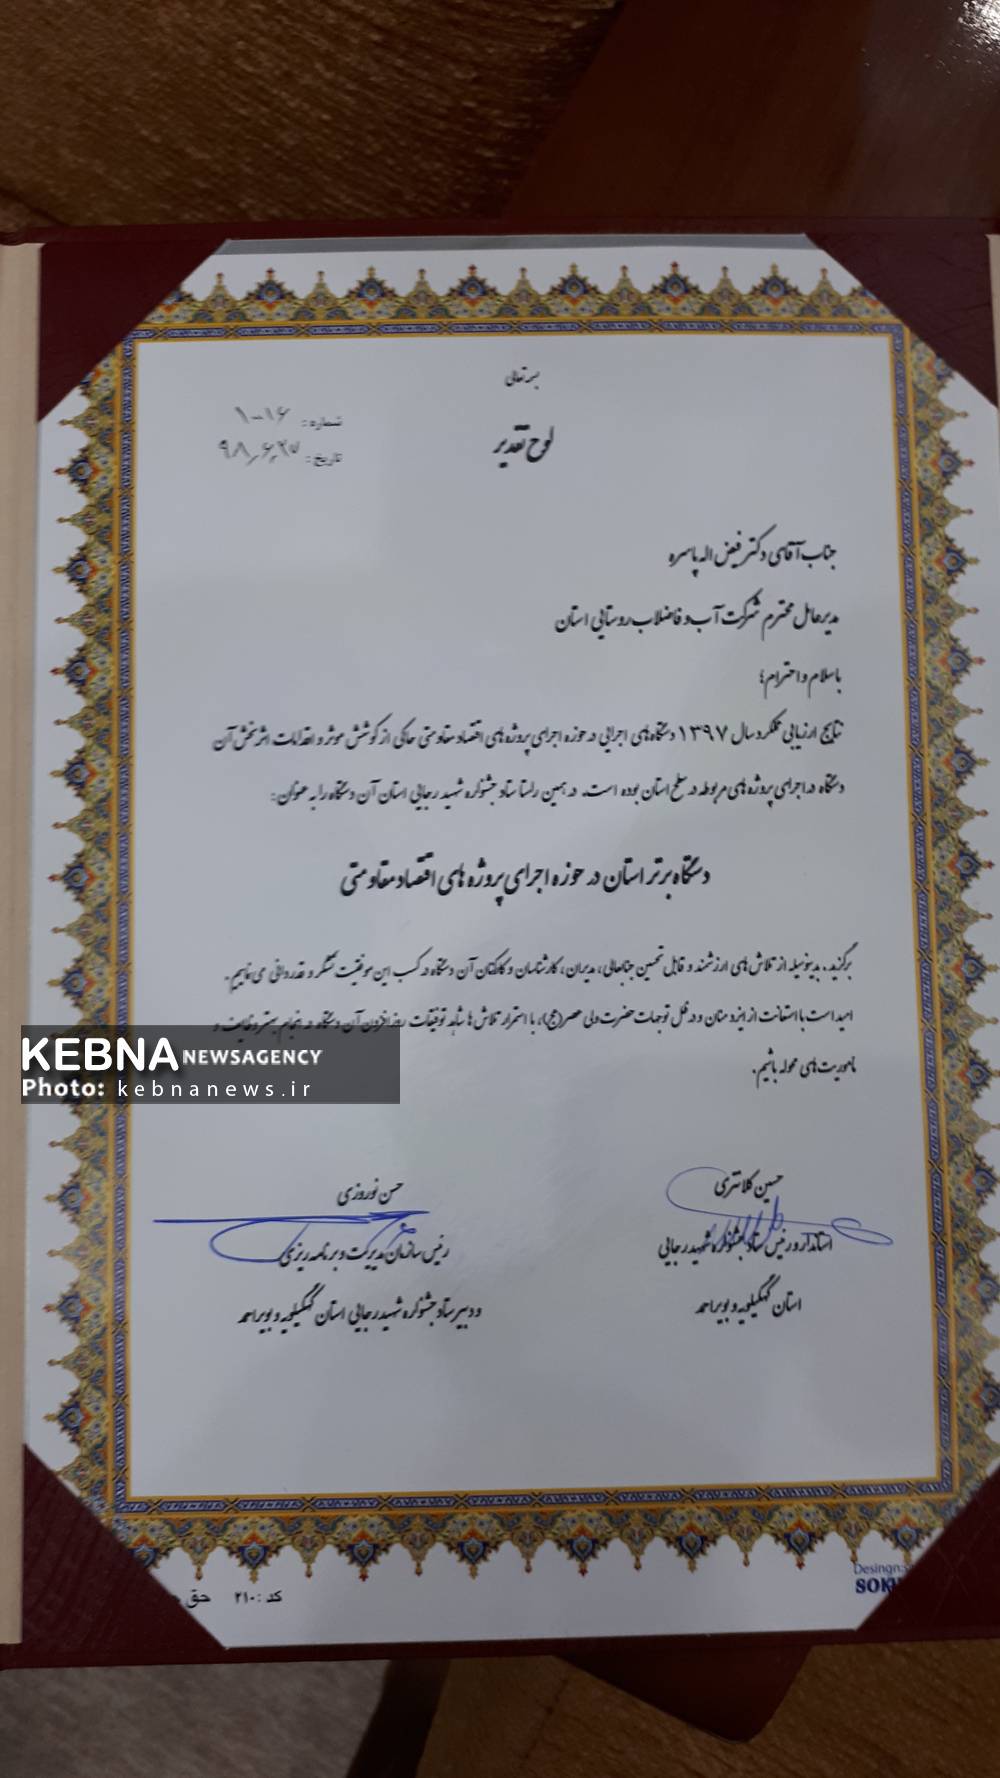 بسمه تعالی
شماره: ۱۰۱۶
لوح تقدیر
تاریخ: ۹۸٫۶٫۲۷
جناب آقای دکتر فیض اله پاسره
مدیرعامل محترم شرکت آب و فاضلاب روستایی استان
باسلام و احترام؛
نتایج ارزیابی عملکرد سال ۱۳۹۷ دستگاه‌های اجرایی در حوزه اجرای پروژه های اقتصاد مقاومتی حاکی از کوشش موثر و اقدامات اثربخش آن
دستگاه در اجرای پروژه های مربوطه در سطح استان بوده است. در همین راستا ستاد جشنواره شهید رجایی استان آن دستگاه را به عنوان:
دستگاه برتر استان در حوزه اجرای پروژه های اقتصاد مقاومتی
برگزید. بدینوسیله از تلاش های ارزشمند و قابل تحسین جنابعالی، مدیران، کارشناسان و کارکنان آن دستگاه در کسب این موفقیت تشکر و قدردانی می نماییم.
امید است با استعانت از ایزد منان و در ظل توجهات حضرت ولی عصر(عج)، با استمرار تلاش ها شاهد توفیقات روزافزون آن دستگاه در انجام بهتر وظایف و
ماموریت های محوله باشیم.
KEBNA NEWSAGENCY
Photo: kebnanews.ir
حسین کلانتری
استاندار و رئیس ستاد جشنواره شهید رجایی
استان کهگیلویه و بویراحمد
حسن نوروزی
رئیس سازمان مدیریت و برنامه ریزی
و دبیر ستاد جشنواره شهید رجایی استان کهگیلویه و بویراحمد
Desingn:
کد: ۲۱۰ حق